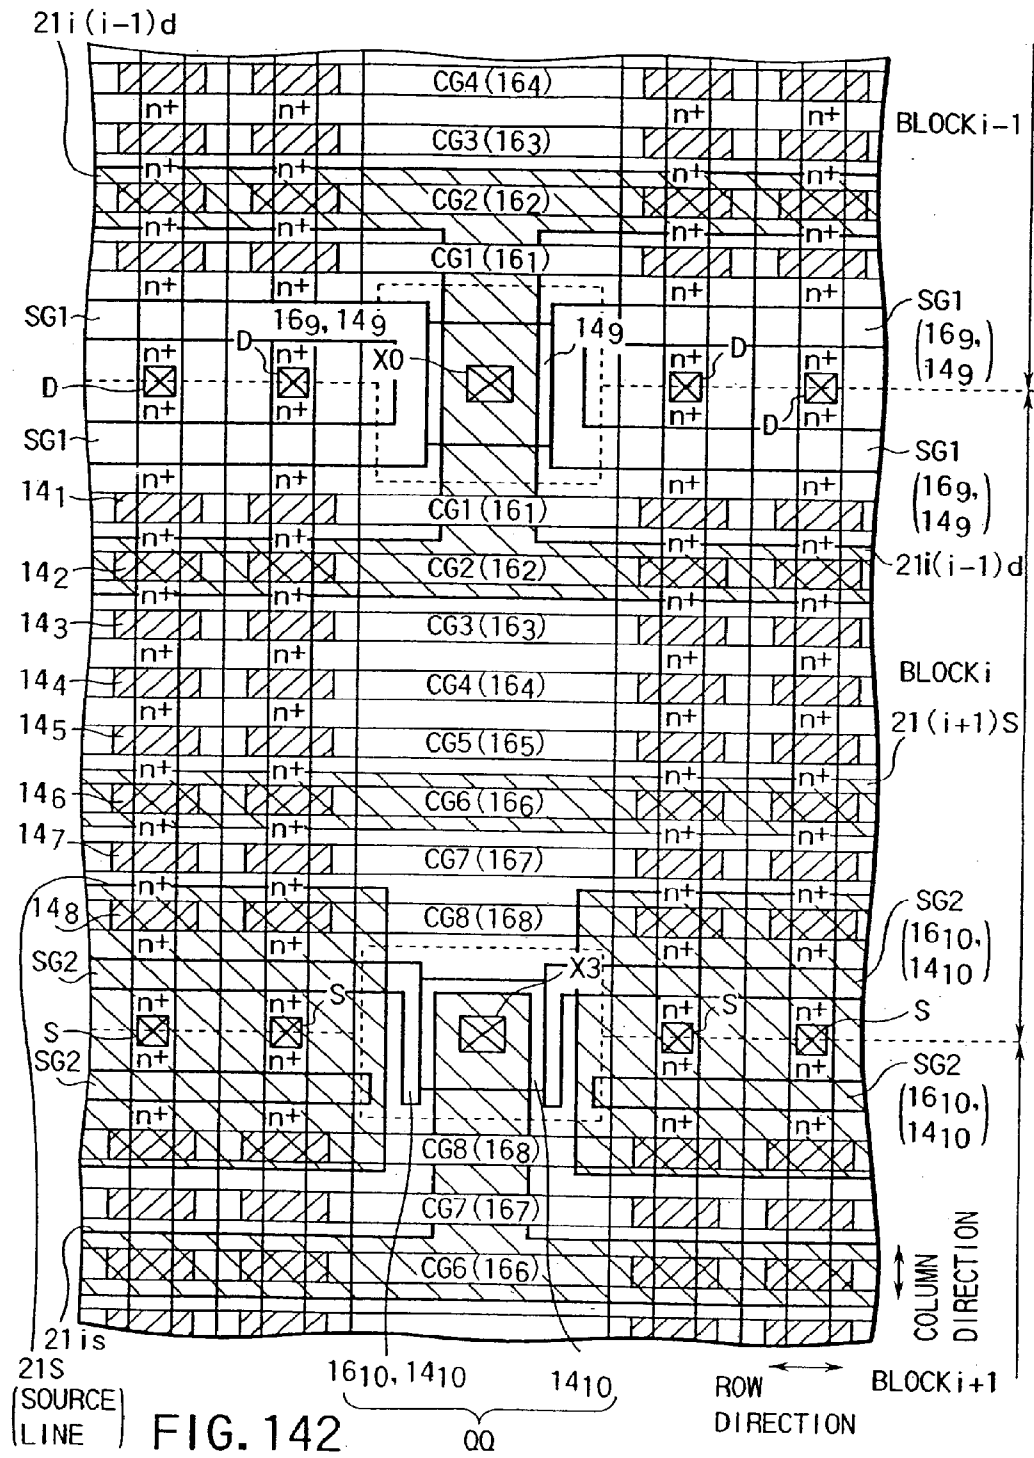 21i(i-1)d
CG4(164)
n+ n+ n+ n+
BLOCKi-1
CG3(163)
n+ n+ n+ n+
CG2(162)
n+ n+ n+ n+
CG1(161)
n+ n+ n+ n+
SG1
169, 149
149
SG1
(169, 149)
n+ n+ n+ n+
D D X0 D
D D
n+ n+ n+ n+
SG1
SG1
(169, 149)
n+ n+ n+ n+
141
CG1(161)
n+ n+ n+ n+
142
CG2(162)
21i(i-1)d
n+ n+ n+ n+
143
CG3(163)
n+ n+ n+ n+
144
CG4(164)
BLOCKi
n+ n+ n+ n+
145
CG5(165)
21(i+1)S
n+ n+ n+ n+
146
CG6(166)
n+ n+ n+ n+
147
CG7(167)
n+ n+ n+ n+
148
CG8(168)
SG2
(1610, 1410)
n+ n+ n+ n+
SG2
X3
n+ n+ n+ n+
S S S S
n+ n+ n+ n+
SG2
SG2
(1610, 1410)
n+ n+ n+ n+
CG8(168)
CG7(167)
CG6(166)
COLUMN
DIRECTION
21is
21S
(SOURCE
LINE)
1610, 1410
1410
QQ
ROW
DIRECTION
BLOCKi+1
FIG. 142